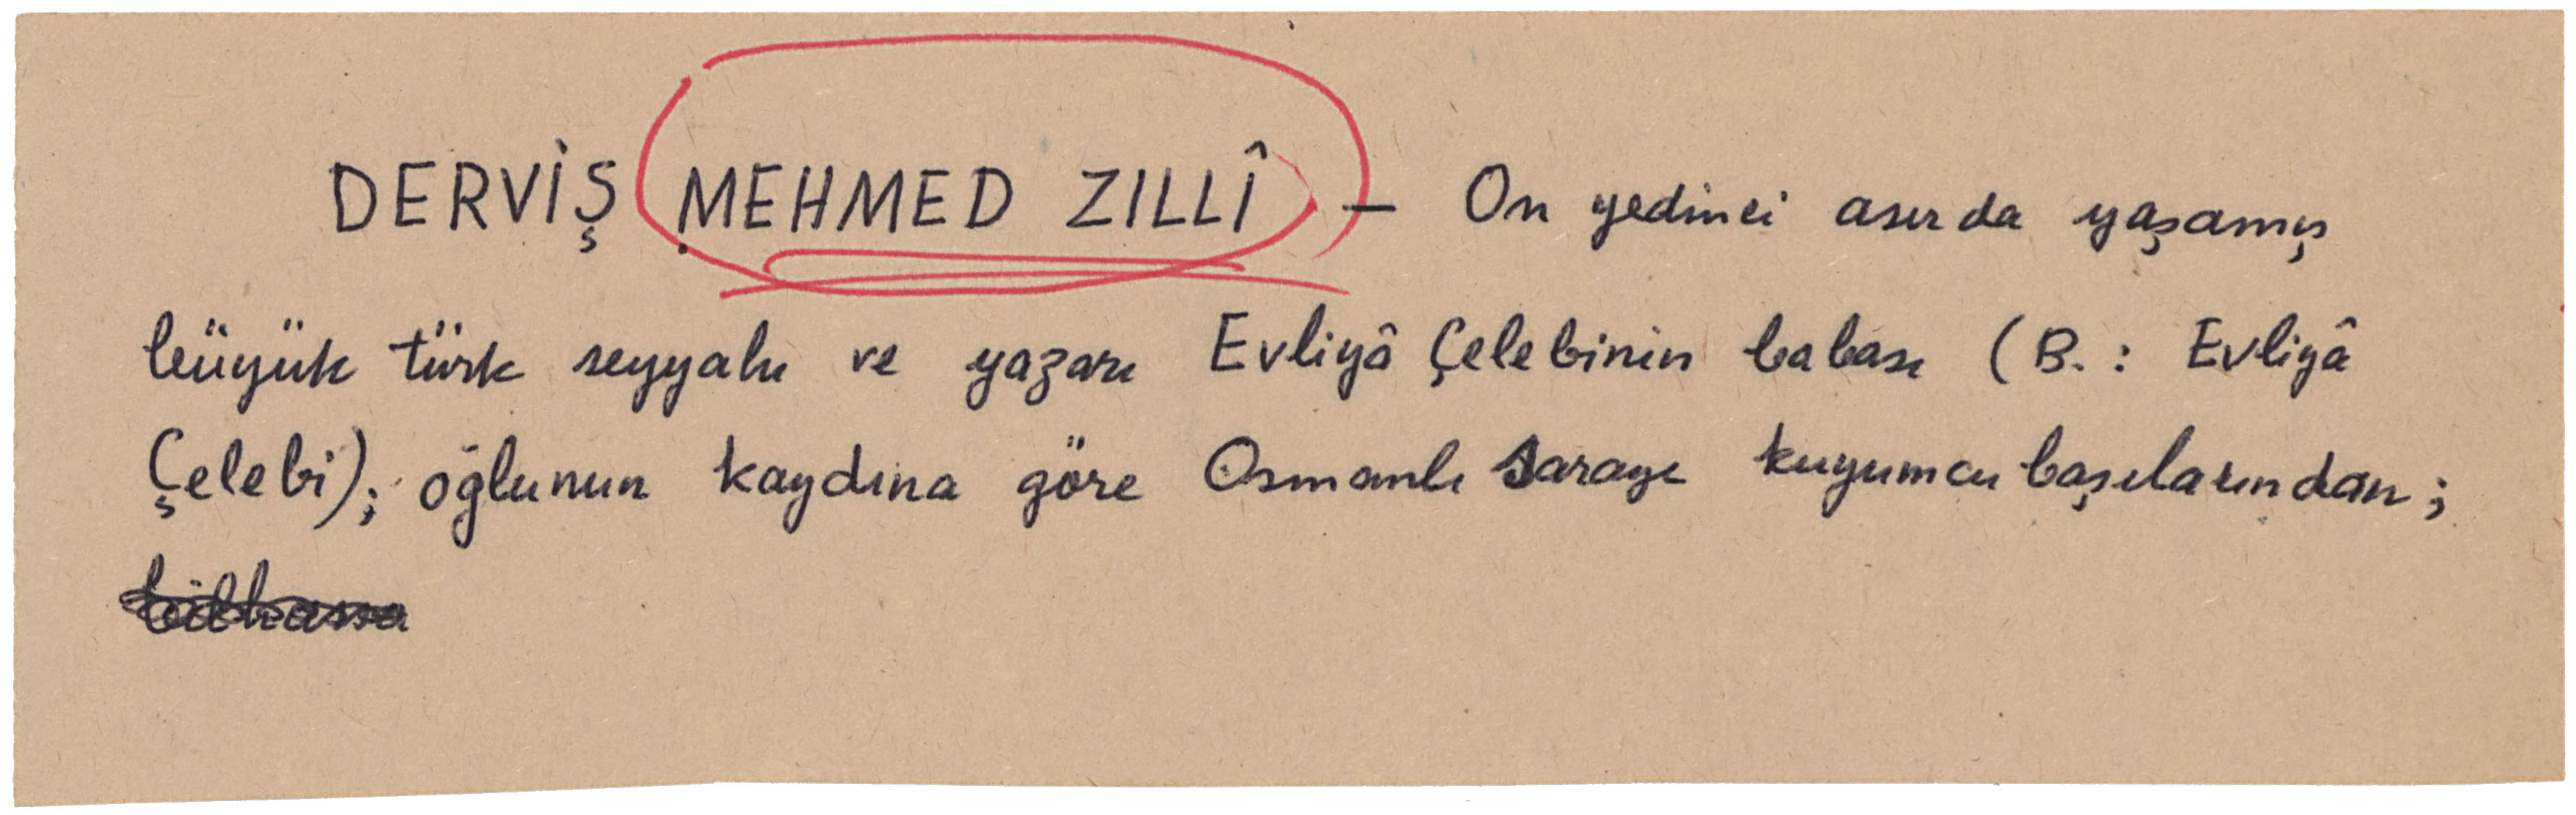 DERVİŞ MEHMED ZILLÎ — On yedinci asırda yaşamış
büyük türk seyyahı ve yazarı Evliyâ Çelebinin babası (B. : Evliyâ
Çelebi); oğlunun kaydına göre Osmanlı Sarayı kuyumcubaşılarından ;
bilhassa